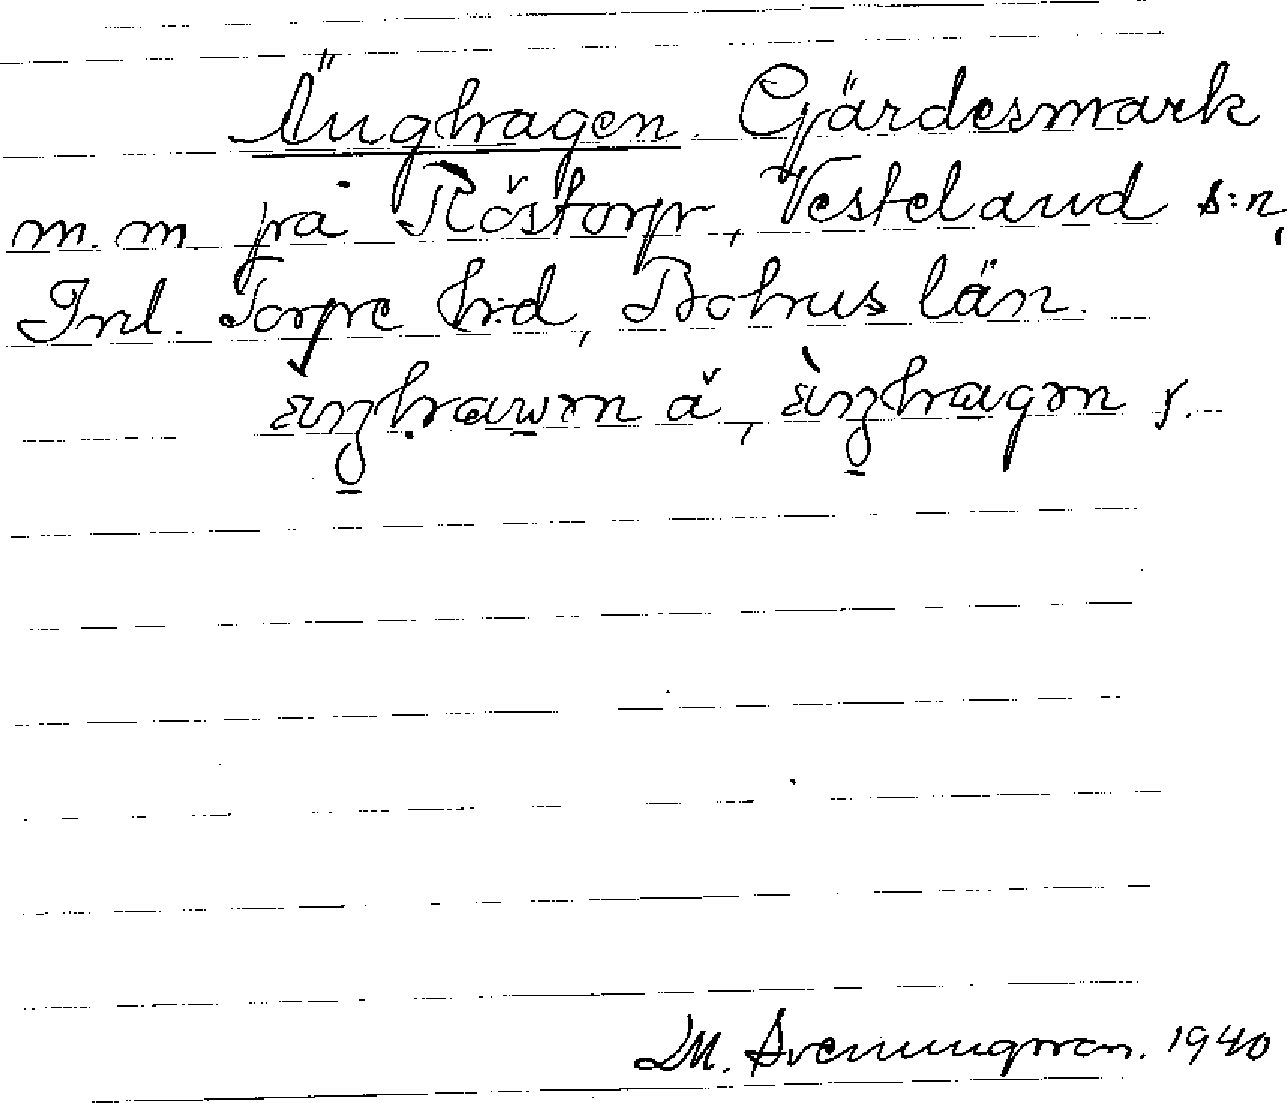 Änghagen. Gjärdesmark
m.m. på Röstorp, Vesteland s:n,
Inl. Torpe h:d, Bohus län.
M. Svenungsson. 1940